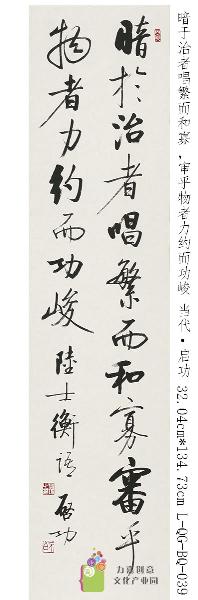 暗於治者唱繁而和寡審乎
物者力約而功峻 陸士衡語 啟功
暗于治者唱繁而和寡，审乎物者力约而功峻 当代·启功 32.04cm*134.73cm L-QG-BQ-039
力嘉创意
文化产业园